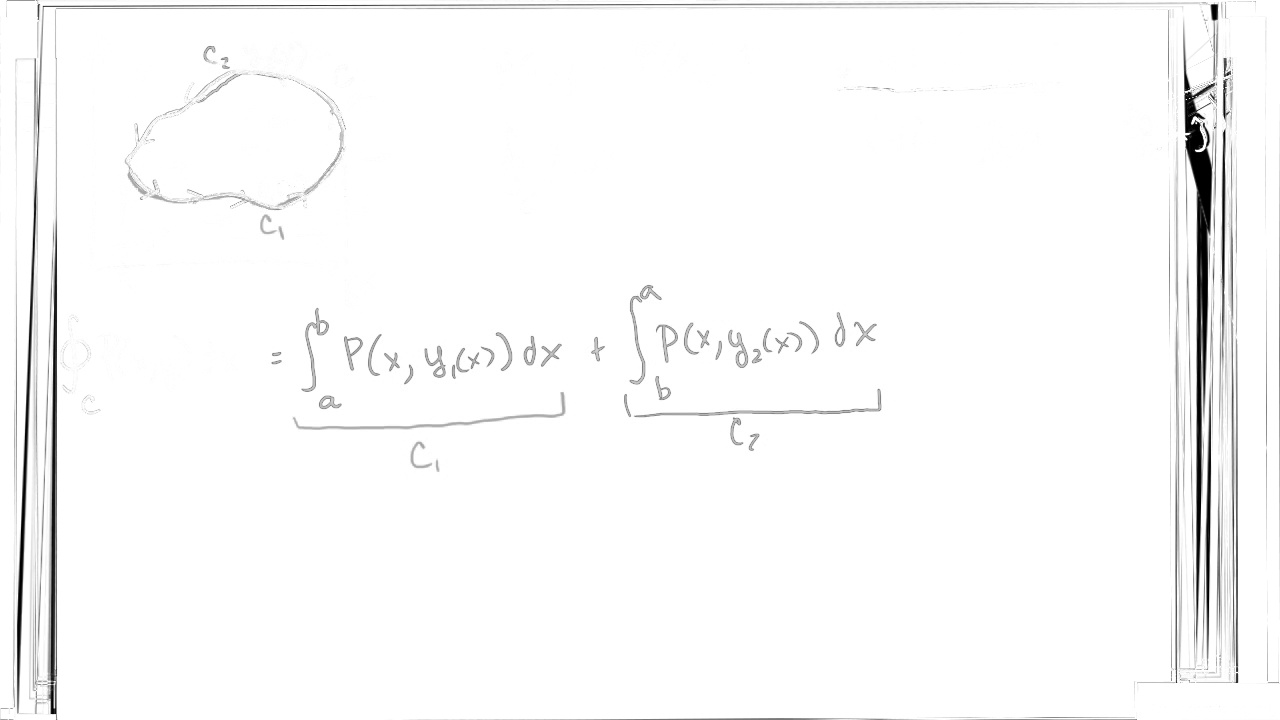 C₂
C₁
= ∫ₐᵇ P(x, y₁(x)) dx + ∫_bᵃ P(x, y₂(x)) dx
C₁ C₂